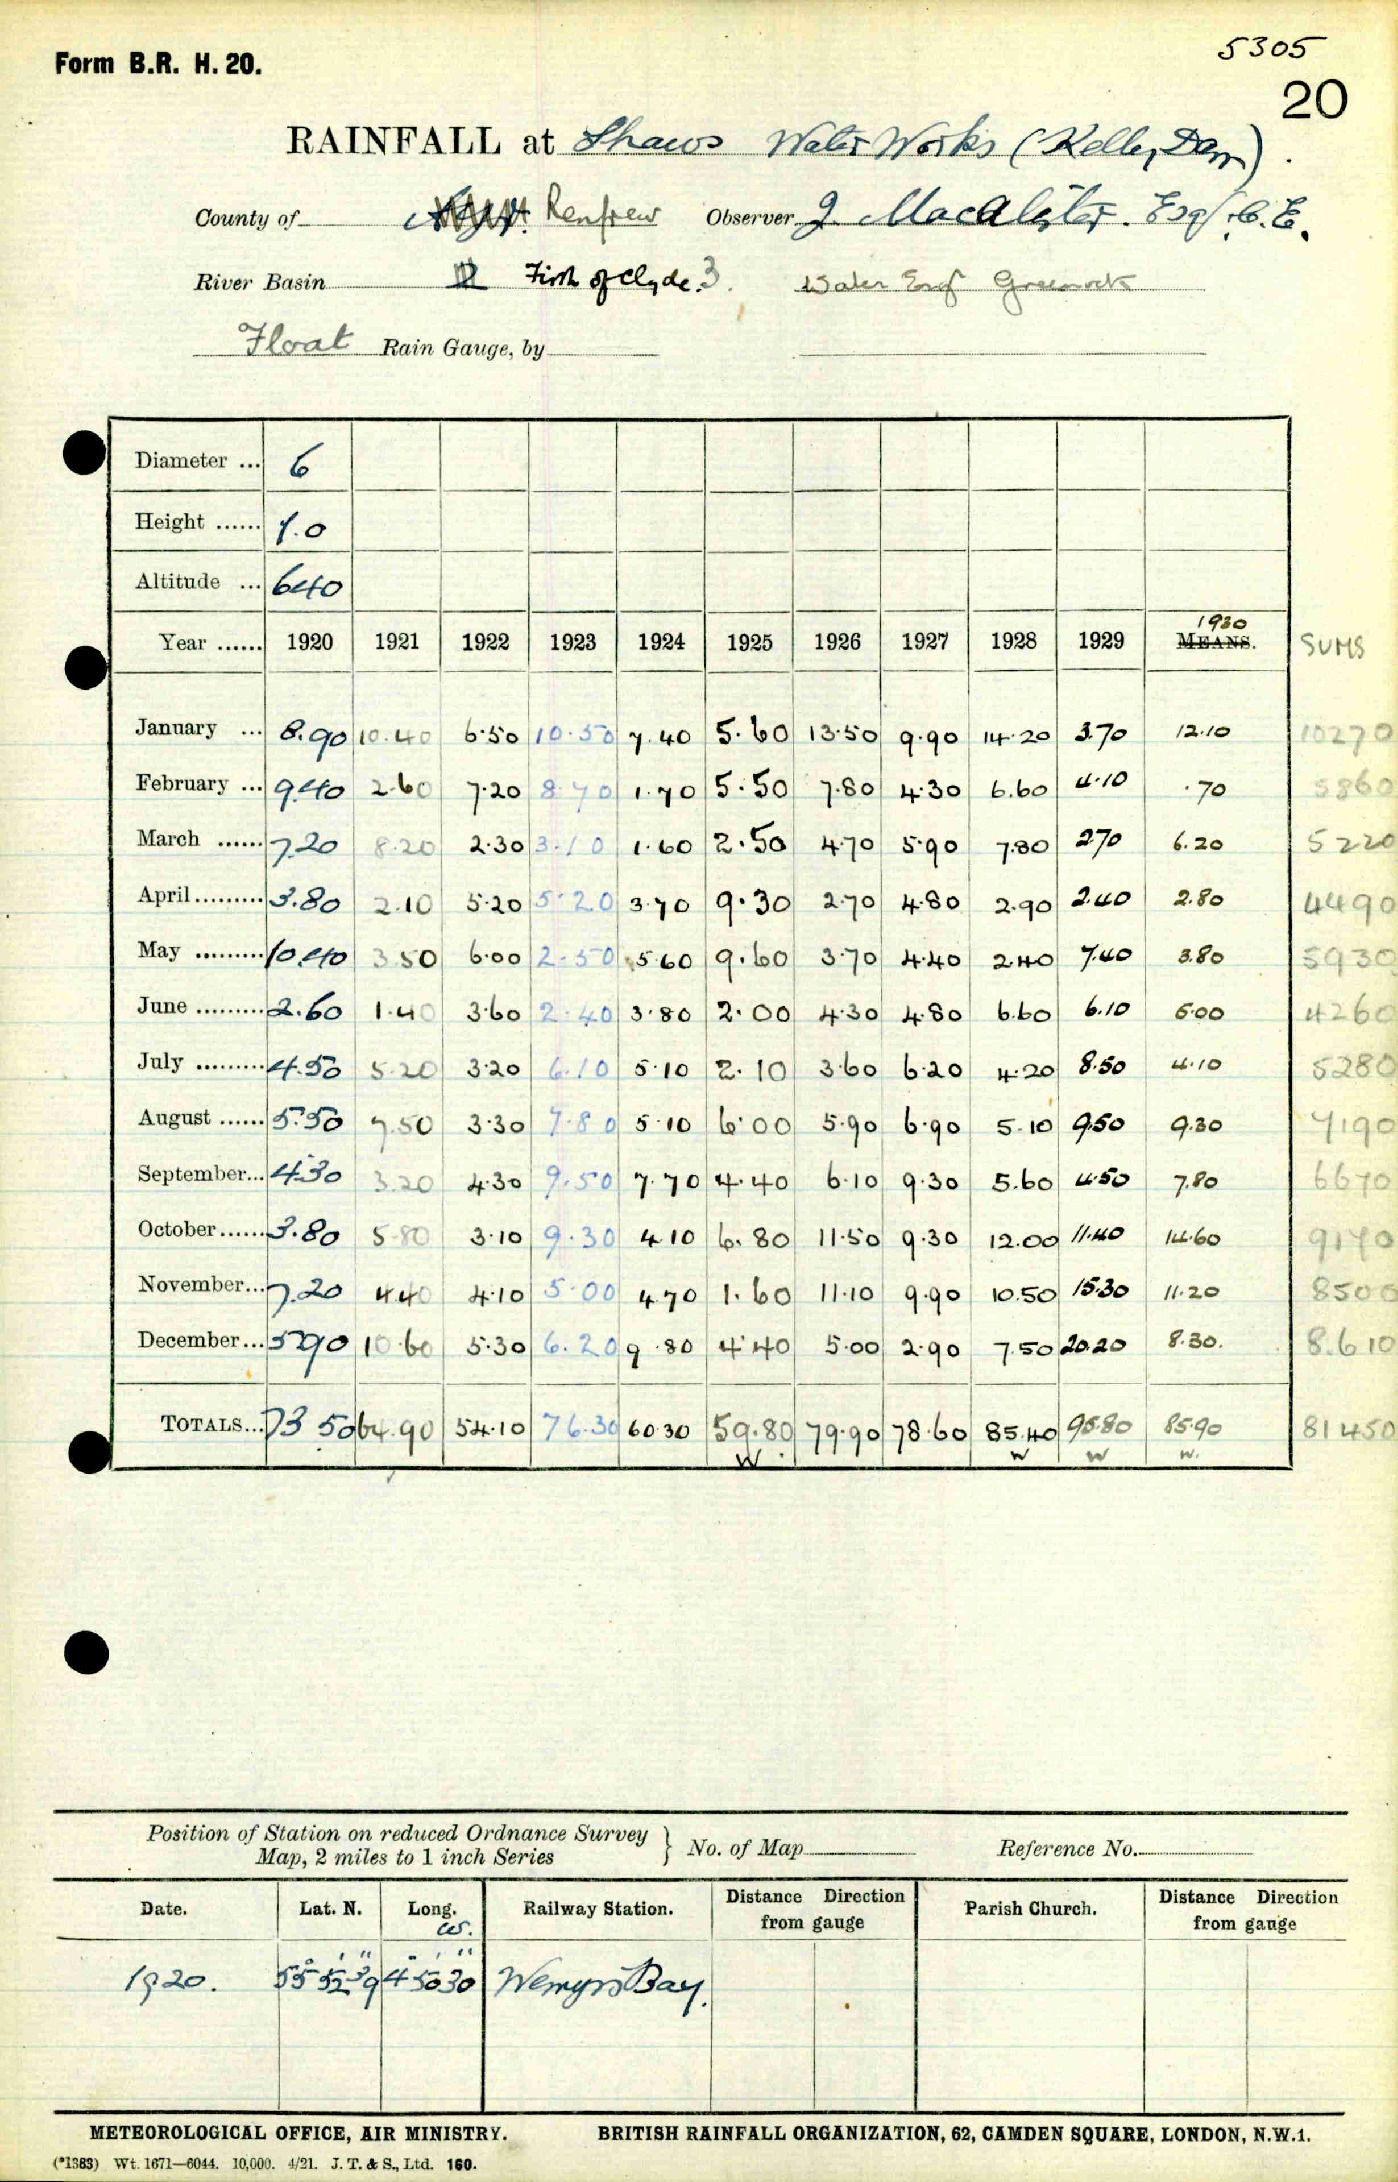 5305
Form B.R. H. 20.
20
RAINFALL at Shaws Water Works (Kelly Dam).
County of Renfrew Observer J. MacAlister. Esq. C.E.
River Basin Firth of Clyde. 3. Water Engr Greenock
Float Rain Gauge, by
Diameter ... 6
Height ...... 1.0
Altitude ... 640
Year ...... 1920 1921 1922 1923 1924 1925 1926 1927 1928 1929 1930 MEANS. SUMS
January ... 8.90 10.40 6.50 10.50 7.40 5.60 13.50 9.90 14.20 3.70 12.10 10270
February ... 9.40 2.60 7.20 8.70 1.70 5.50 7.80 4.30 6.60 4.10 .70 5860
March ...... 7.20 8.20 2.30 3.10 1.60 2.50 4.70 5.90 7.80 2.70 6.20 5220
April ......... 3.80 2.10 5.20 5.20 3.70 9.30 2.70 4.80 2.90 2.40 2.80 4490
May ......... 10.40 3.50 6.00 2.50 5.60 9.60 3.70 4.40 2.40 7.40 3.80 5930
June ......... 2.60 1.40 3.60 2.40 3.80 2.00 4.30 4.80 6.60 6.10 5.00 4260
July ......... 4.50 5.20 3.20 6.10 5.10 2.10 3.60 6.20 4.20 8.50 4.10 5280
August ...... 5.50 7.50 3.30 7.80 5.10 6.00 5.90 6.90 5.10 9.50 9.30 7190
September... 4.30 3.20 4.30 9.50 7.70 4.40 6.10 9.30 5.60 4.50 7.80 6670
October ...... 3.80 5.80 3.10 9.30 4.10 6.80 11.50 9.30 12.00 11.40 14.60 9170
November... 7.20 4.40 4.10 5.00 4.70 1.60 11.10 9.90 10.50 15.30 11.20 8500
December... 5.90 10.60 5.30 6.20 9.80 4.40 5.00 2.90 7.50 20.20 8.30. 8.610
TOTALS... 73.50 64.90 54.10 76.30 60.30 59.80 79.90 78.60 85.40 95.80 85.90 81450
W. W W W.
Position of Station on reduced Ordnance Survey Map, 2 miles to 1 inch Series } No. of Map Reference No.
Date. Lat. N. Long. W. Railway Station. Distance Direction from gauge Parish Church. Distance Direction from gauge
1920. 55° 52' 39" 4° 50' 30" Wemyss Bay.
METEOROLOGICAL OFFICE, AIR MINISTRY. BRITISH RAINFALL ORGANIZATION, 62, CAMDEN SQUARE, LONDON, N.W.1.
(*1383) Wt. 1671—6044. 10,000. 4/21. J. T. & S., Ltd. 160.